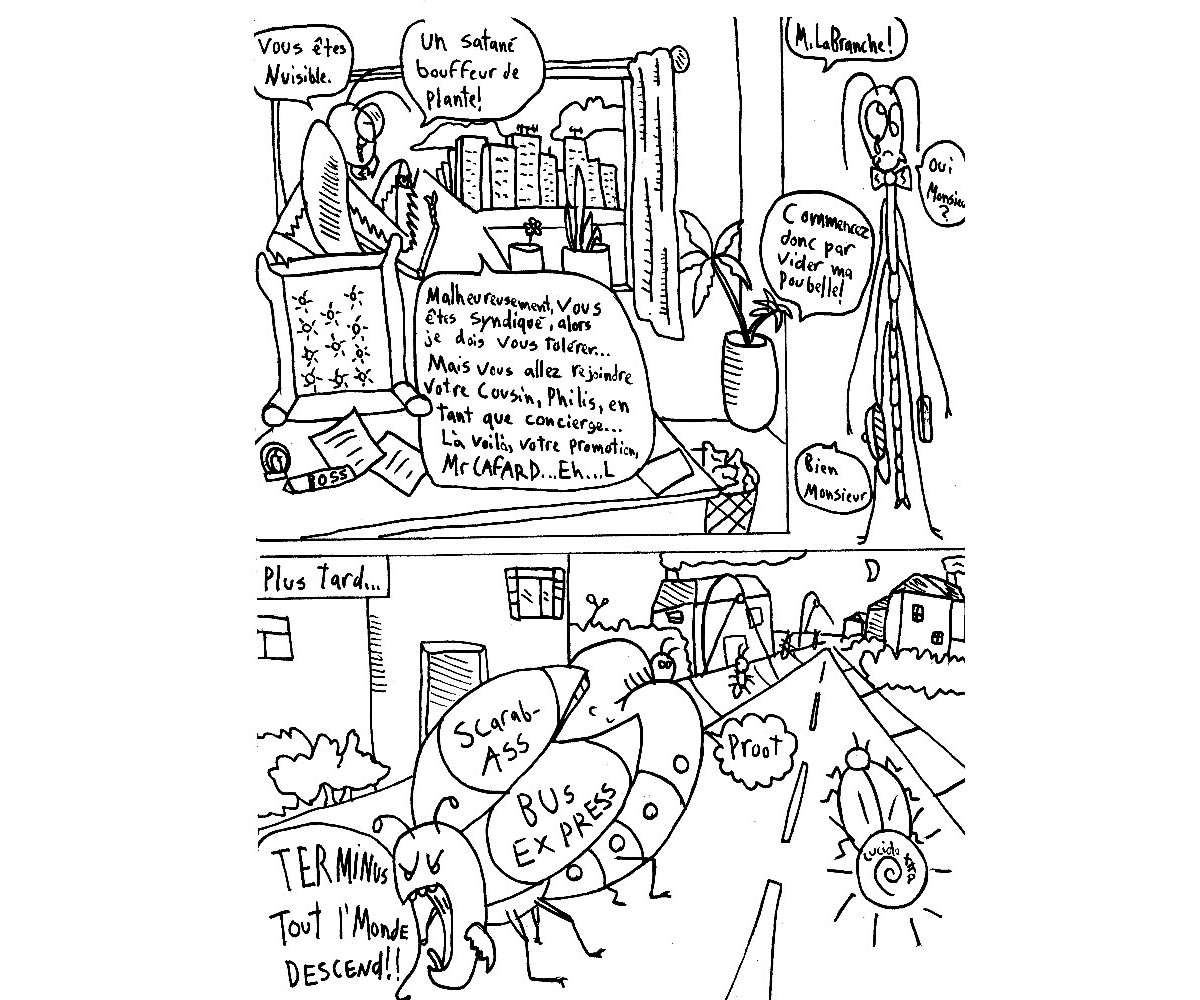 Vous êtes
Nuisible.
Un satané
bouffeur de
plante!
Malheureusement, vous
êtes syndiqué, alors
je dois vous tolérer...
Mais vous allez rejoindre
votre Cousin, Philis, en
tant que concierge...
Là voilà, votre promotion,
Mr CAFARD...Eh...L
BOSS
M. LaBranche!
Oui
Monsieu
?
Commencez
donc par
vider ma
poubelle!
Bien
Monsieur
Plus tard...
Scarab-
ASS
BUs
EXPRESS
Proot
TERMINUS
Tout l'Monde
DESCEND!!